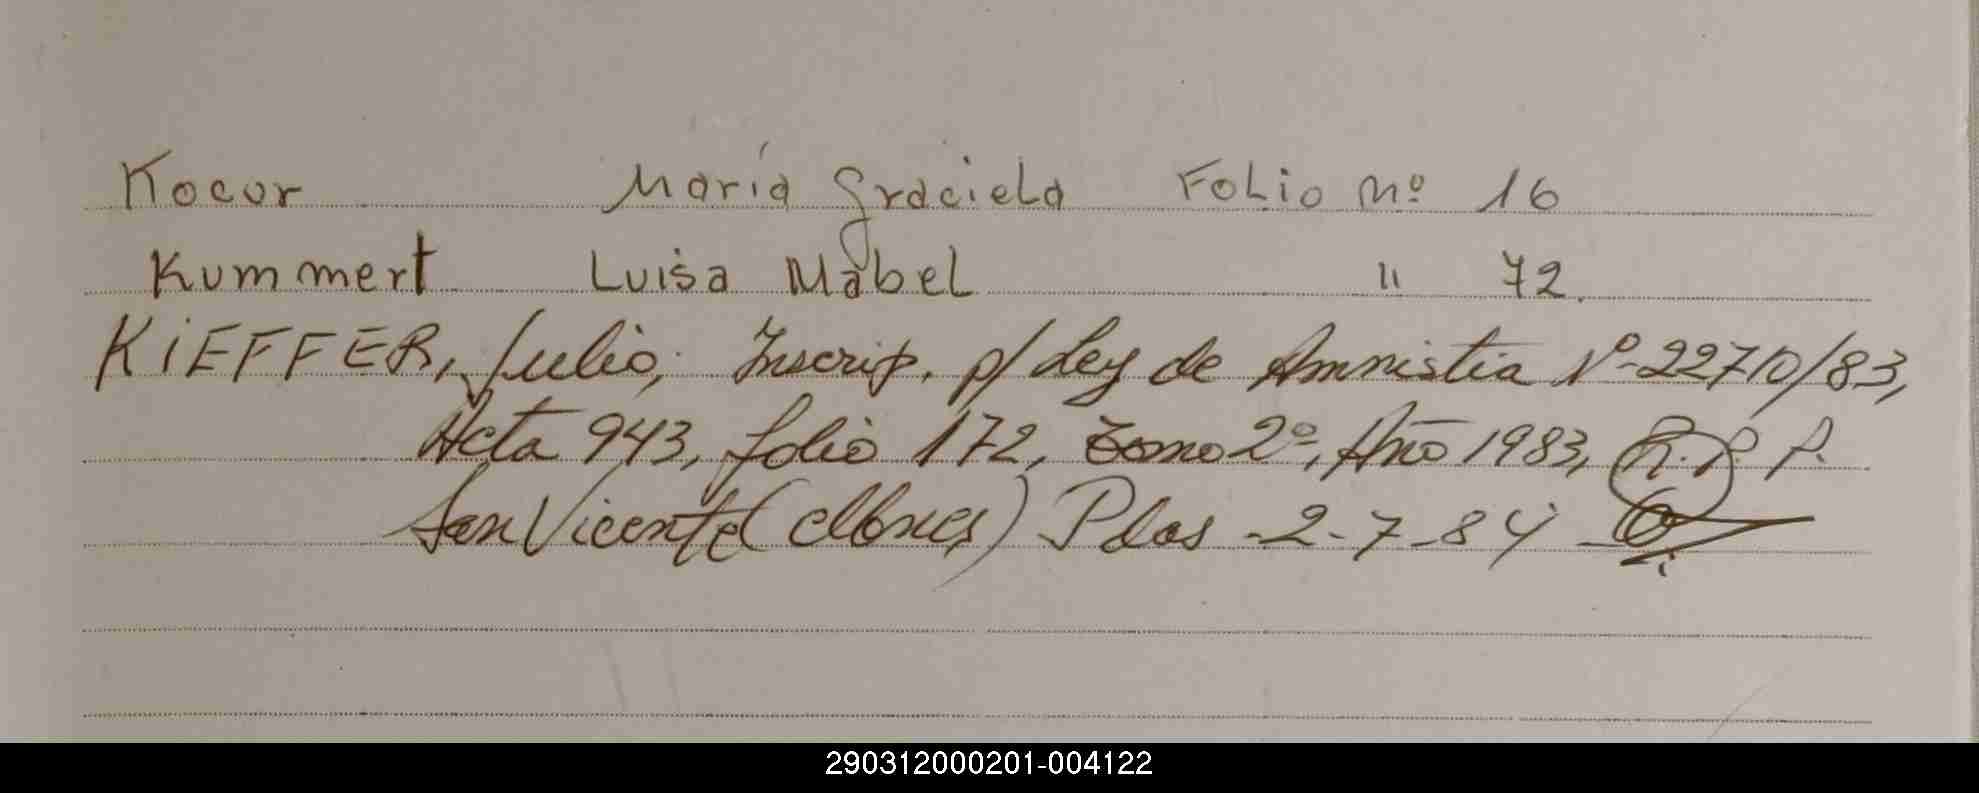 Kocur María Graciela Folio Nº 16
Kummert Luisa Mabel " 72.
KIEFFER, Julio; Inscrip. p/ Ley de Amnistia Nº 22710/83,
Acta 943, folio 172, tomo 2º, Año 1983, R.P.P.
San Vicente (Mnes) Pdas - 2-7-84
290312000201-004122